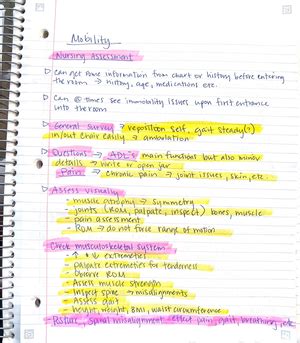 Mobility
Nursing Assessment
▷ Can get some information from chart or history before entering
the room → history, age, medications etc.
▷ Can @ times see immobility issues upon first entrance
into the room
▷ General survey → reposition self, gait steady(?)
in/out chair easily → ambulation
▷ Questions → ADL's main functions but also minor
details → write or open jar
▷ Pain → chronic pain → joint issues, skin, etc.
▷ Assess visually
- muscle atrophy → symmetry
- joints (ROM, palpate, inspect) bones, muscle
- pain assessment
- ROM → do not force range of motion
▷ Check musculoskeletal system
- ↑ + ↓ extremeties
- palpate extremeties for tenderness
- Observe ROM
- Assess muscle strength
- Inspect spine → misalignments
- Assess gait
- height, weight, BMI, waist circumference
▷ Posture, spinal misalignment effect pain, gait, breathing, etc.